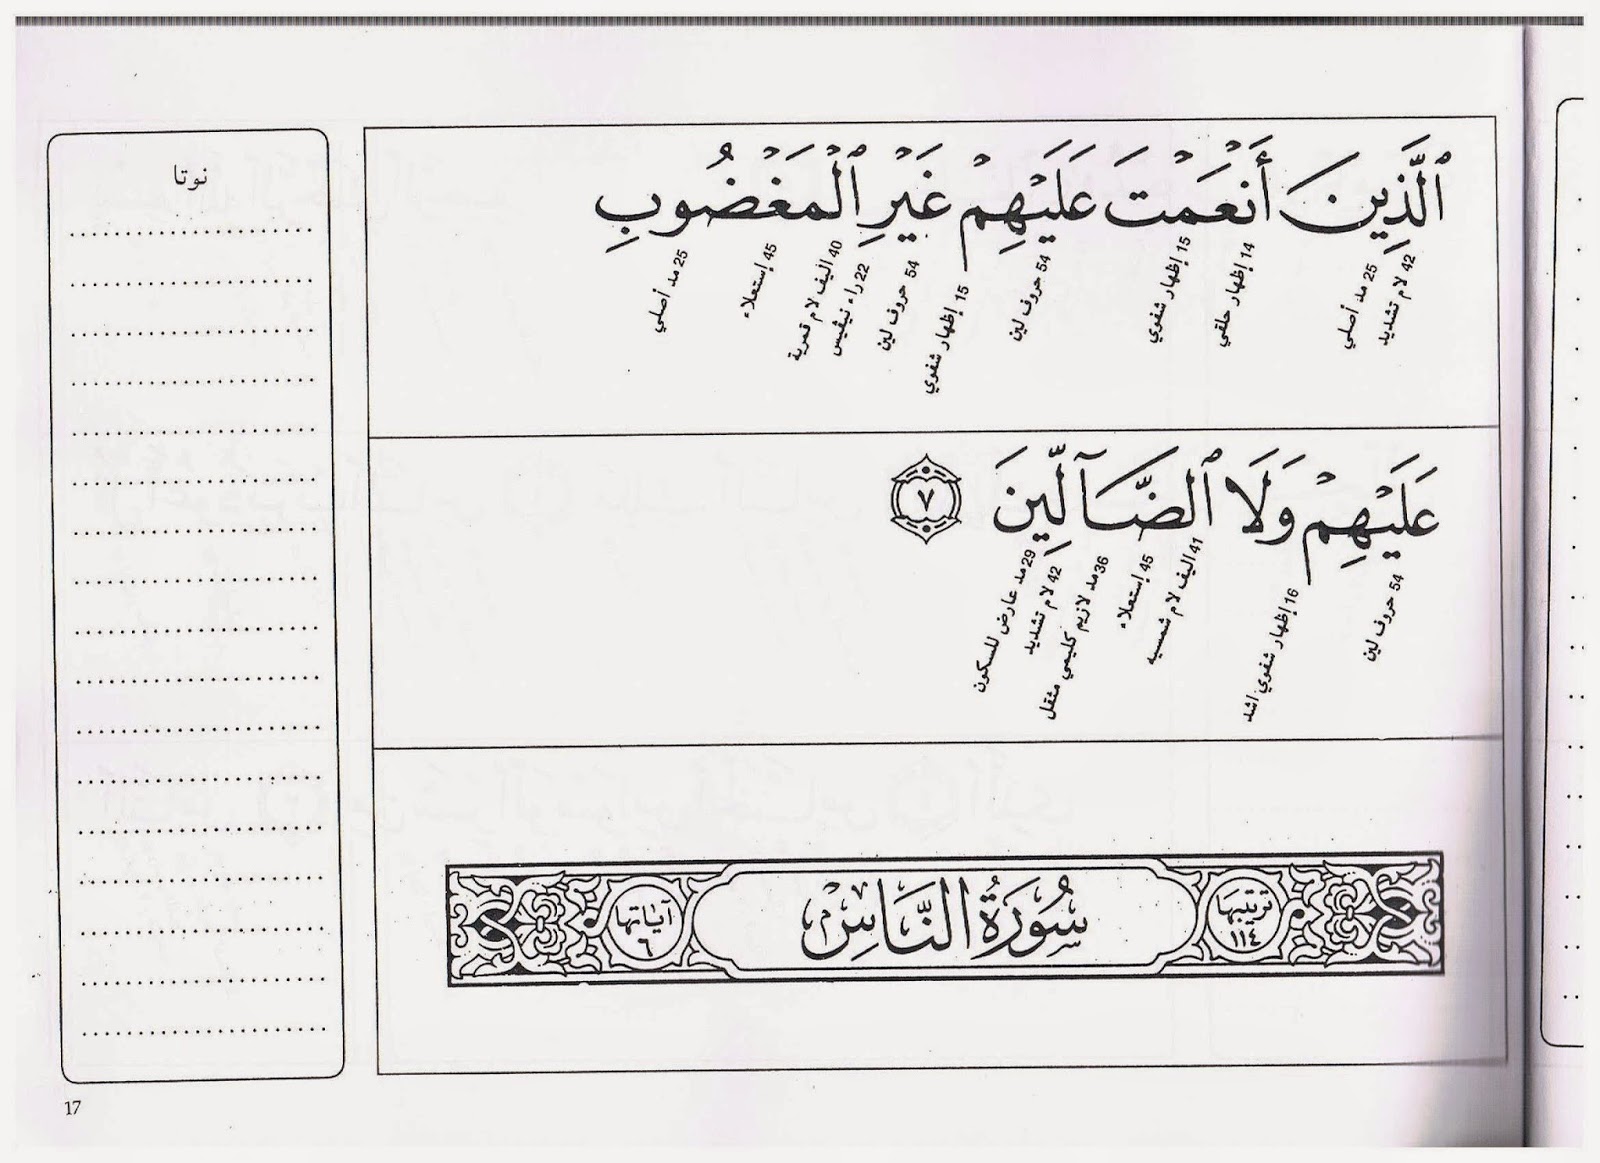 ٱلَّذِينَ أَنْعَمْتَ عَلَيْهِمْ غَيْرِ ٱلْمَغْضُوبِ
42 لام تشديد
25 مد أصلي
14 إظهار حلقي
15 إظهار شفوي
54 حروف لين
15 إظهار شفوي
54 حروف لين
22 راء نيڤيس
40 اليف لام قمرية
45 إستعلاء
25 مد أصلي
عَلَيْهِمْ وَلَا ٱلضَّآلِّينَ ٧
54 حروف لين
16 إظهار شفوي اشد
41 اليف لام شمسيه
45 إستعلاء
36 مد لازيم كليمي مثقل
42 لام تشديد
29 مد عارض للسكون
ترتيبها ١١٤
سُورَةُ النَّاسِ
آياتها ٦
نوتا
17